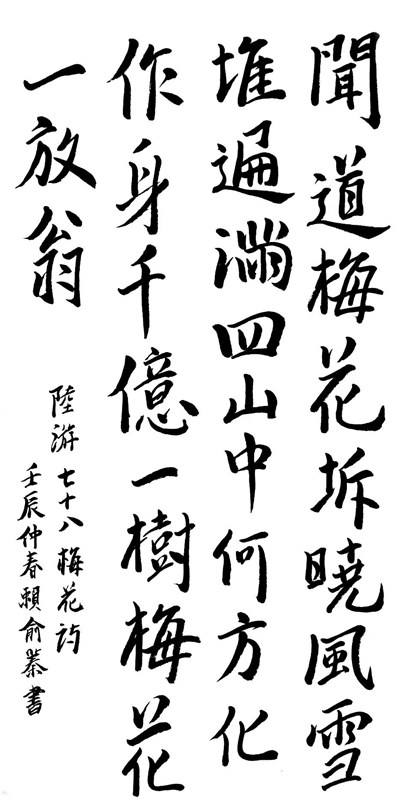 聞道梅花坼曉風雪
堆遍滿四山中何方化
作身千億一樹梅花
一放翁
陸游七十八梅花詩
壬辰仲春賴俞書